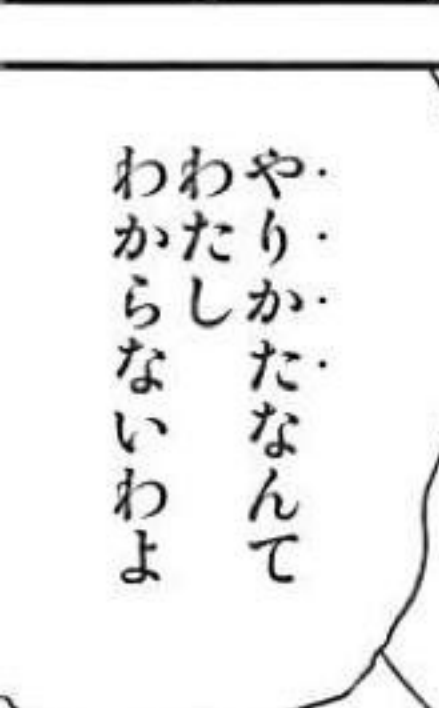 やりかたなんて
わたし
わからないわよ